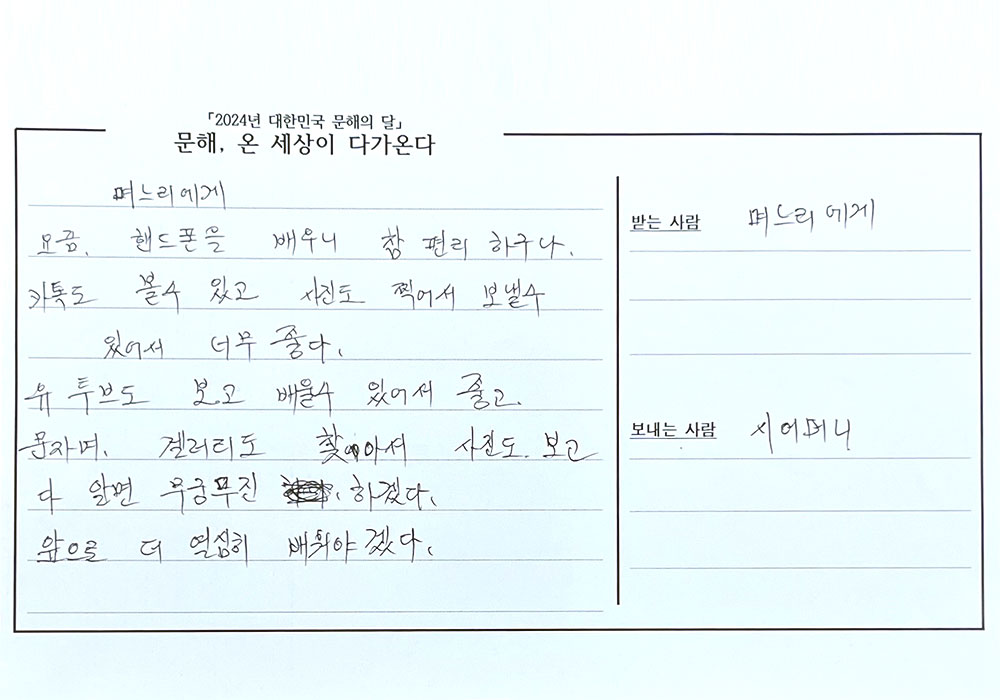 「2024년 대한민국 문해의 달」
문해, 온 세상이 다가온다
며느리에게
요끔. 핸드폰을 배우니 참 편리 하구나.
카톡도 볼수 있고 사진도 찍어서 보낼수
있어서 너무 좋다.
유투브도 보고 배울수 있어서 좋고.
문자며. 겔러티도 찾아서 사진도. 보고
다 알면 무궁무진 하겠다.
앞으로 더 열심히 배워야 겠다.
받는 사람 며느리에게
보내는 사람 시어머니